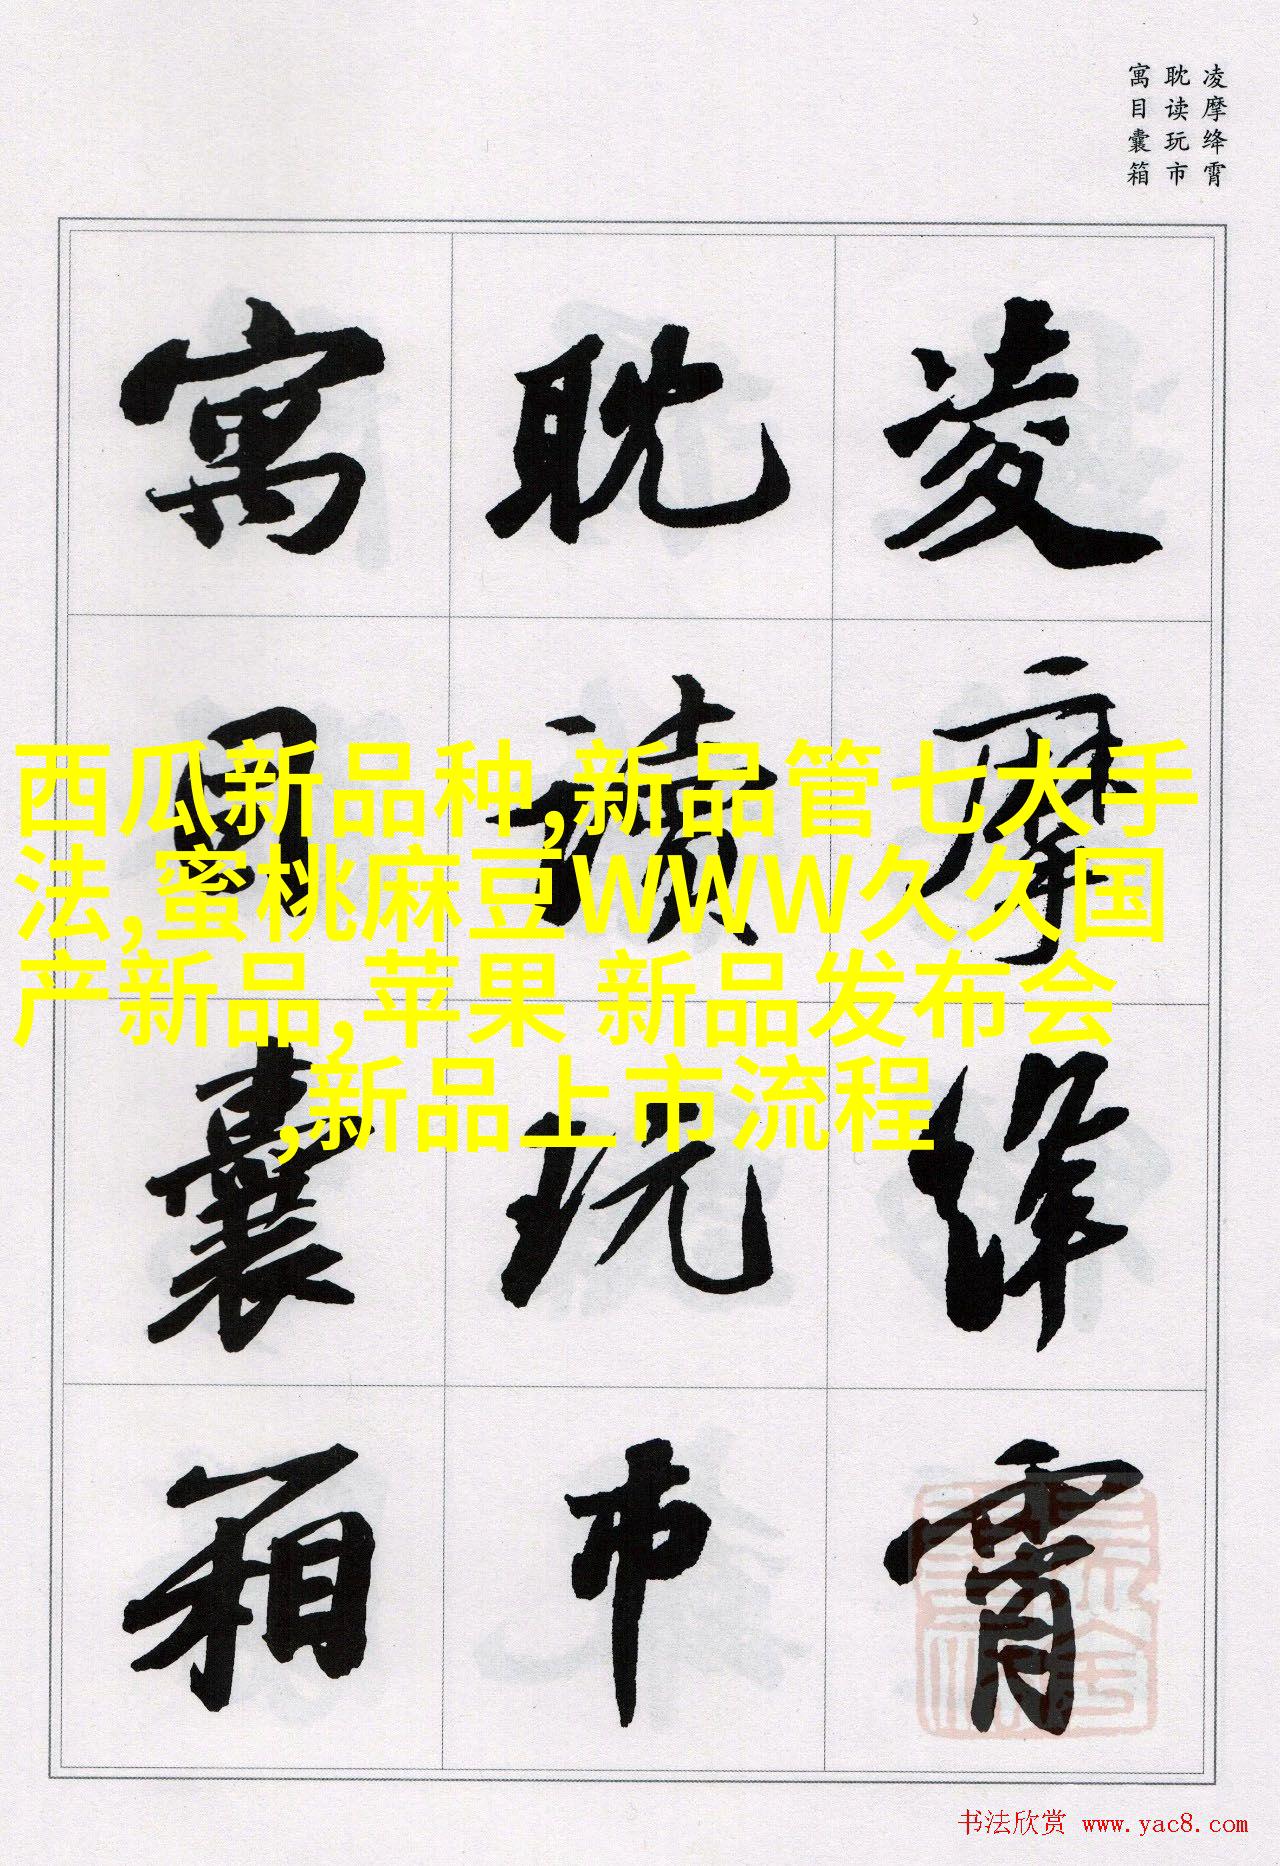 凌摩绛霄
耽读玩市
寓目囊箱
凌摩绛霄
耽读玩市
寓目囊箱
西瓜新品种,新品管七大手
法,蜜桃麻豆WWW久久国
产新品,苹果 新品发布会
,新品上市流程
书法欣赏 www.yac8.com